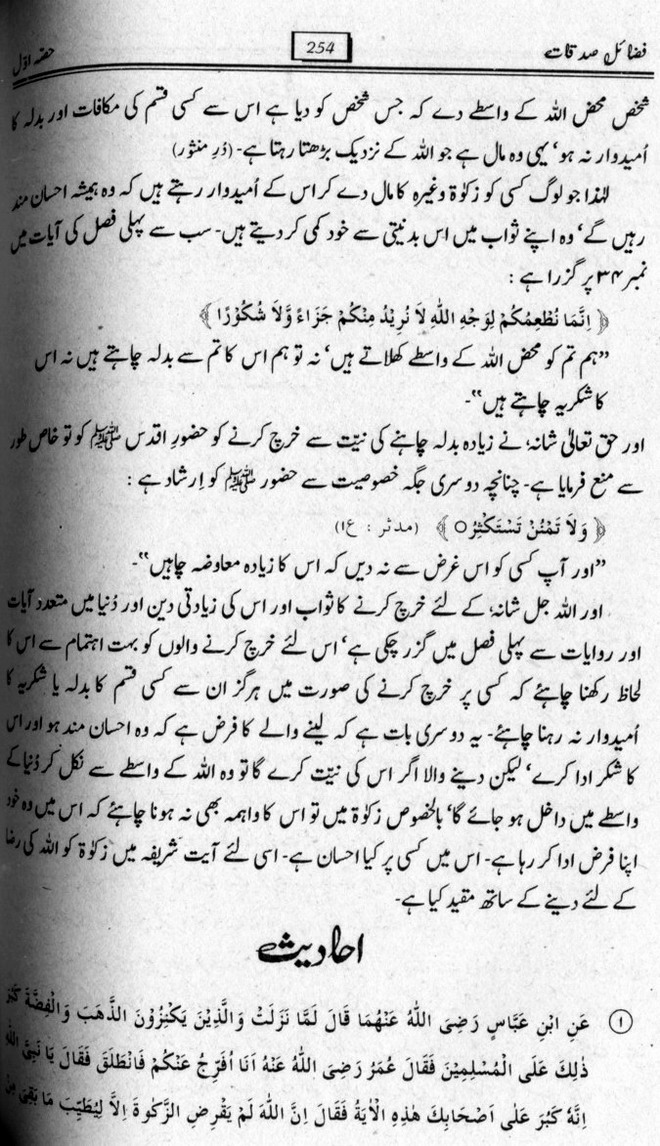 فضائل صدقات 254 حصہ اوّل
شخص محض اللہ کے واسطے دے کہ جس شخص کو دیا ہے اس سے کسی قسم کی مکافات اور بدلہ کا
اُمیدوار نہ ہو، یہی وہ مال ہے جو اللہ کے نزدیک بڑھتا رہتا ہے۔ (دُرِ منثور)
لہٰذا جو لوگ کسی کو زکوٰۃ وغیرہ کا مال دے کر اس کے اُمیدوار رہتے ہیں کہ وہ ہمیشہ احسان مند
رہیں گے، وہ اپنے ثواب میں اس بدنیتی سے خود کمی کر دیتے ہیں۔ سب سے پہلی فصل کی آیات میں
نمبر ۳۴ پر گزرا ہے :
﴿ اِنَّمَا نُطْعِمُكُمْ لِوَجْهِ اللّٰهِ لَا نُرِيْدُ مِنْكُمْ جَزَاءً وَّلَا شُكُوْرًا ﴾
”ہم تم کو محض اللہ کے واسطے کھلاتے ہیں، نہ تو ہم اس کا تم سے بدلہ چاہتے ہیں نہ اس
کا شکریہ چاہتے ہیں“۔
اور حق تعالیٰ شانہٗ نے زیادہ بدلہ چاہنے کی نیّت سے خرچ کرنے کو حضورِ اقدس ﷺ کو تو خاص طور
سے منع فرمایا ہے۔ چنانچہ دوسری جگہ خصوصیت سے حضور ﷺ کو اِرشاد ہے :
﴿ وَلَا تَمْنُنْ تَسْتَكْثِرُ○ ﴾ (مدثر : ع۱)
”اور آپ کسی کو اس غرض سے نہ دیں کہ اس کا زیادہ معاوضہ چاہیں“۔
اور اللہ جل شانہٗ کے لئے خرچ کرنے کا ثواب اور اس کی زیادتی دین اور دُنیا میں متعدد آیات
اور روایات سے پہلی فصل میں گزر چکی ہے، اس لئے خرچ کرنے والوں کو بہت اہتمام سے اس کا
لحاظ رکھنا چاہئے کہ کسی پر خرچ کرنے کی صورت میں ہرگز ان سے کسی قسم کا بدلہ یا شکریہ کا
اُمیدوار نہ رہنا چاہئے۔ یہ دوسری بات ہے کہ لینے والے کا فرض ہے کہ وہ احسان مند ہو اور اس
کا شکر ادا کرے، لیکن دینے والا اگر اس کی نیّت کرے گا تو وہ اللہ کے واسطے سے نکل کر دُنیا کے
واسطے میں داخل ہو جائے گا، بالخصوص زکوٰۃ میں تو اس کا واہمہ بھی نہ ہونا چاہئے کہ اس میں وہ خود
اپنا فرض ادا کر رہا ہے۔ اس میں کسی پر کیا احسان ہے۔ اسی لئے آیت شریفہ میں زکوٰۃ کو اللہ کی رضا
کے لئے دینے کے ساتھ مقید کیا ہے۔
احادیث
① عَنِ ابْنِ عَبَّاسٍ رَضِىَ اللّٰهُ عَنْهُمَا قَالَ لَمَّا نَزَلَتْ وَالَّذِيْنَ يَكْنِزُوْنَ الذَّهَبَ وَالْفِضَّةَ كَبُرَ
ذٰلِكَ عَلَى الْمُسْلِمِيْنَ فَقَالَ عُمَرُ رَضِىَ اللّٰهُ عَنْهُ اَنَا اُفَرِّجُ عَنْكُمْ فَانْطَلَقَ فَقَالَ يَا نَبِىَّ اللّٰهِ
اِنَّهٗ كَبُرَ عَلٰى اَصْحَابِكَ هٰذِهِ الْاٰيَةُ فَقَالَ اِنَّ اللّٰهَ لَمْ يَفْرِضِ الزَّكٰوةَ اِلَّا لِيُطَيِّبَ مَا بَقِىَ مِنْ